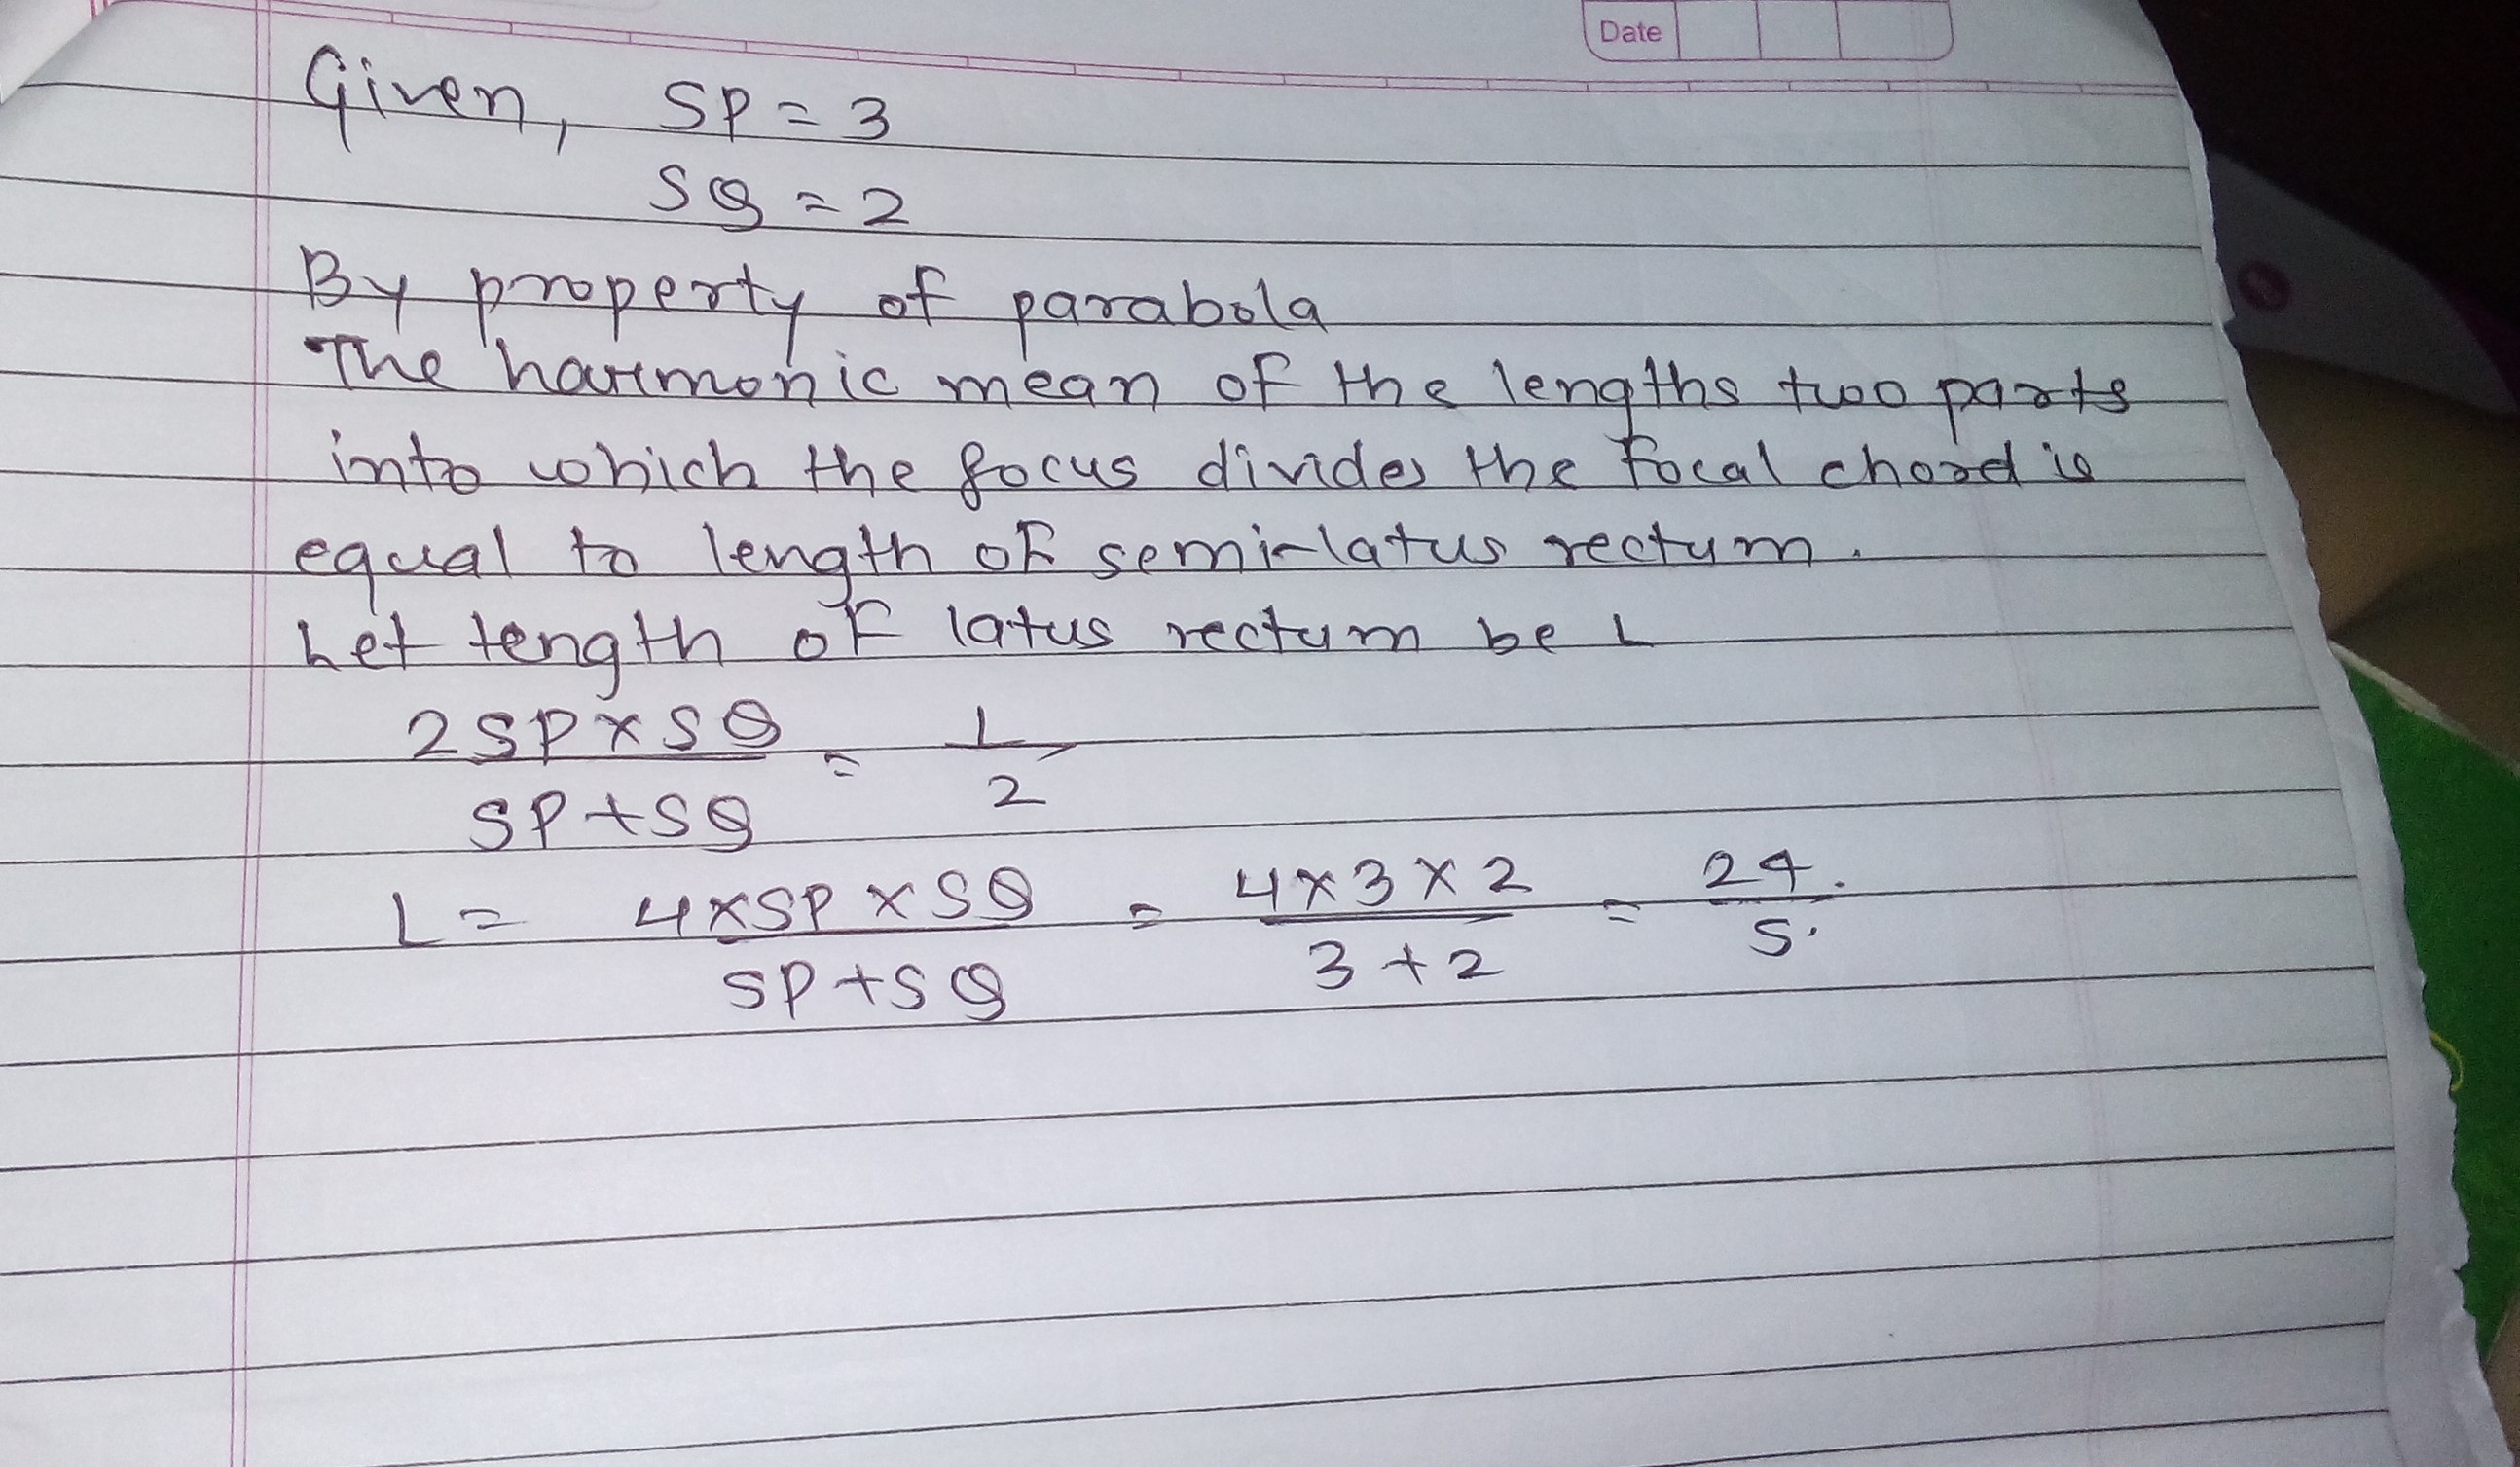 Date
Given, SP = 3
SQ = 2
By property of parabola
The harmonic mean of the lengths two parts
into which the focus divides the focal chord is
equal to length of semi-latus rectum.
Let length of latus rectum be L
2SP×SQ / SP+SQ = L/2
L = 4×SP×SQ / SP+SQ = 4×3×2 / 3+2 = 24/5.